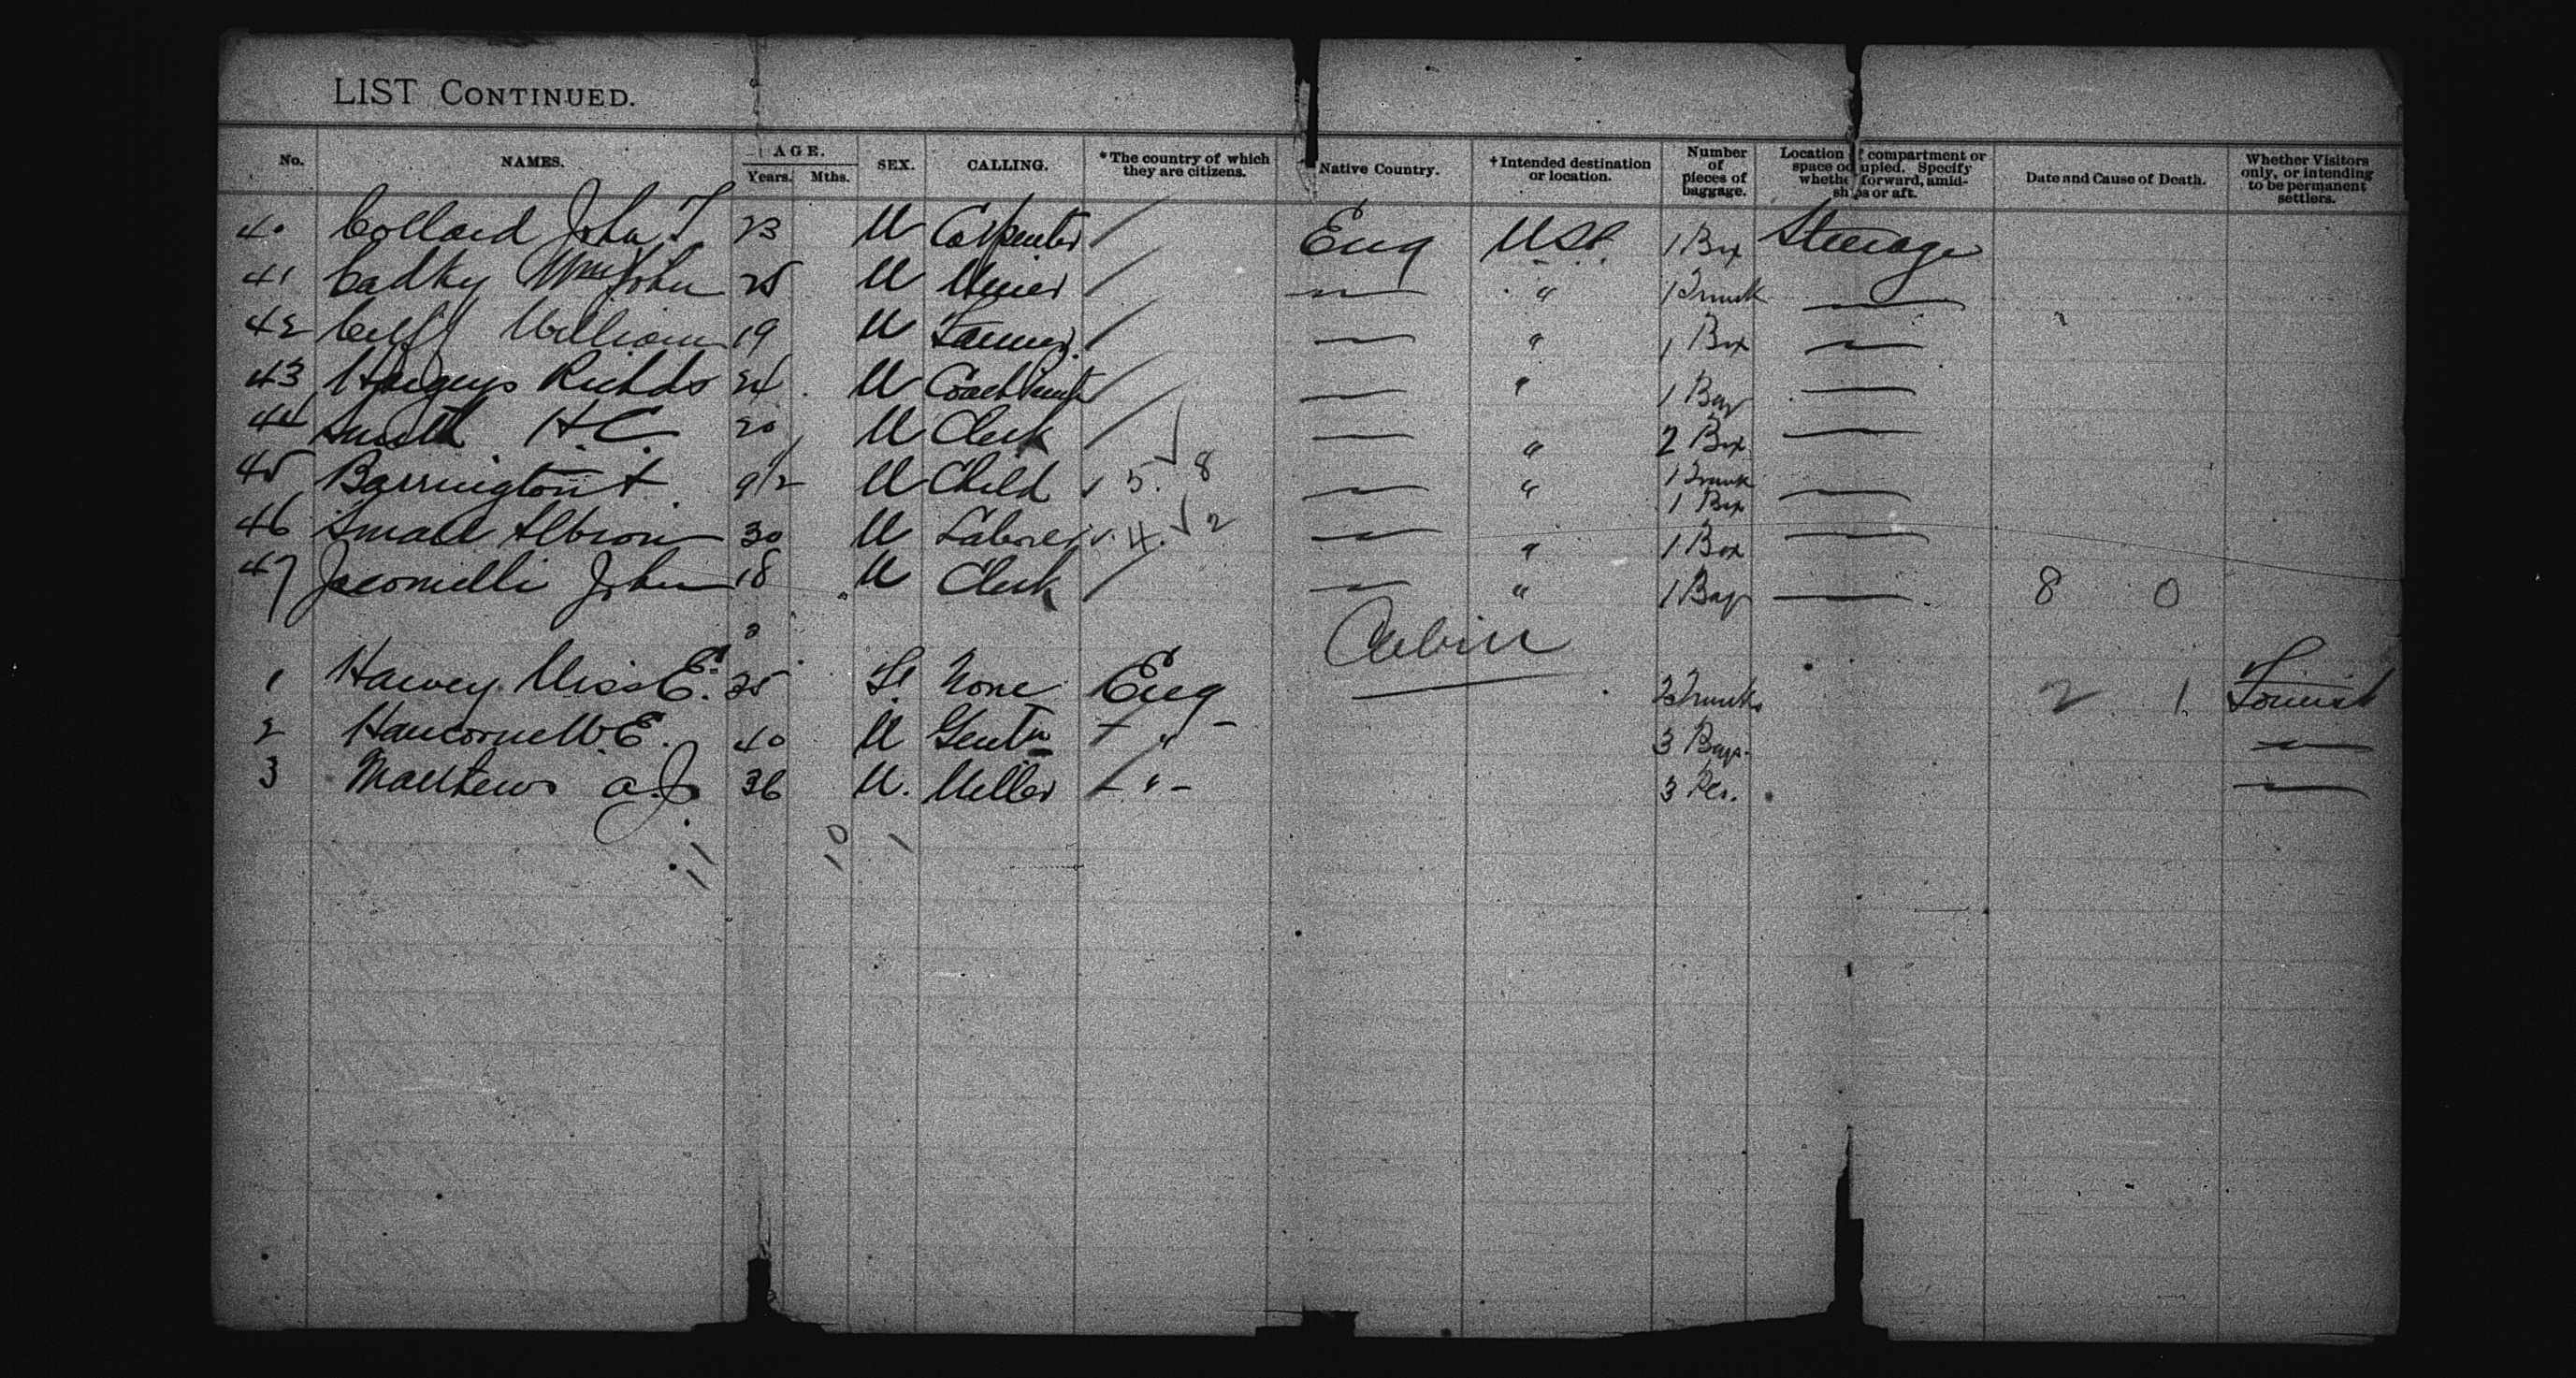 LIST CONTINUED.
No. NAMES. AGE. Years. Mths. SEX. CALLING. *The country of which they are citizens. Native Country. †Intended destination or location. Number of pieces of baggage. Location of compartment or space occupied. Specify whether forward, amidships or aft. Date and Cause of Death. Whether Visitors only, or intending to be permanent settlers.
40 Collard John T 23 M Carpenter / Eng USA 1 Box Steerage
41 John 25 M Miner / — " 1 Trunk —
42 William 19 M / — " 1 Box —
43 Richd 24 M / — " 1 Bag —
44 Smith H.C. 20 M Clerk / — " 2 Box —
45 Barrington 9 1/2 M Child 5. 8 — " 1 Trunk 1 Box —
46 Small Albion 30 M Laborer 4. 2 — " 1 Box —
47 Jacomelli John 18 M Clerk / — " 1 Bag — 8 0
Cabin
1 Harvey Miss E. 25 F None Eng 2 Trunks 2 1 Tourist
2 Hancorne W.E. 40 M Gentn " 3 Bags. —
3 Matthews A.J. 36 M. Miller " 3 Pcs. —
11 10 1